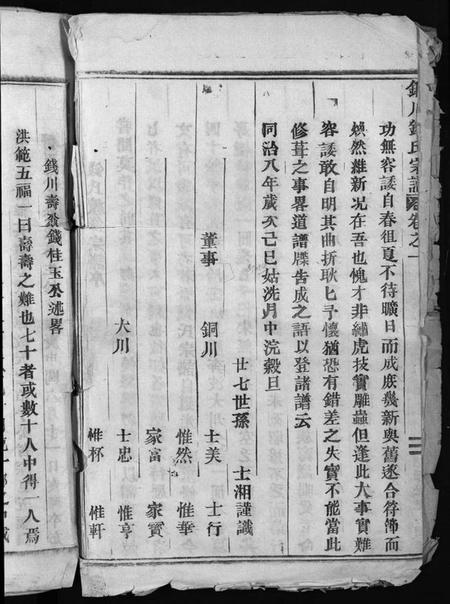 錢川錢氏宗譜 卷之一
功無容諉自春徂夏不待曠日而成庶幾新與舊遂合符節而
煥然維新况在吾也愧才非繡虎技實雕蟲但逢此大事實難
容諉敢自明其曲折耿匕予懷猶恐有錯差之失實不能當此
修葺之事畧道譜牒告成之語以登諸譜云
同治八年歲次己巳姑洗月中浣穀旦
廿七世孫 士湘謹識
董事 銅川 士美 士行
惟然 惟華
家富 家寳
大川 士忠 惟亨
惟杯 惟軒
錢川壽翁錢桂玉公述畧
洪範五福一曰壽壽之難也七十者或數十人中得一人焉